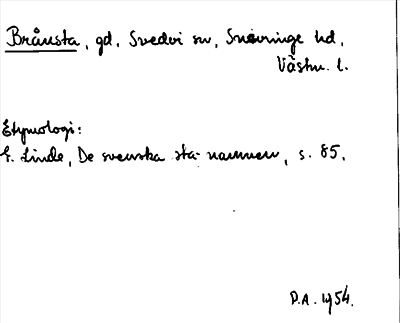 Brånsta, gd, Svedvi sn, Snevringe hd,
Västm. l.
Etymologi:
G. Linde, De svenska sta-namnen, s. 85.
P.A. 1954.